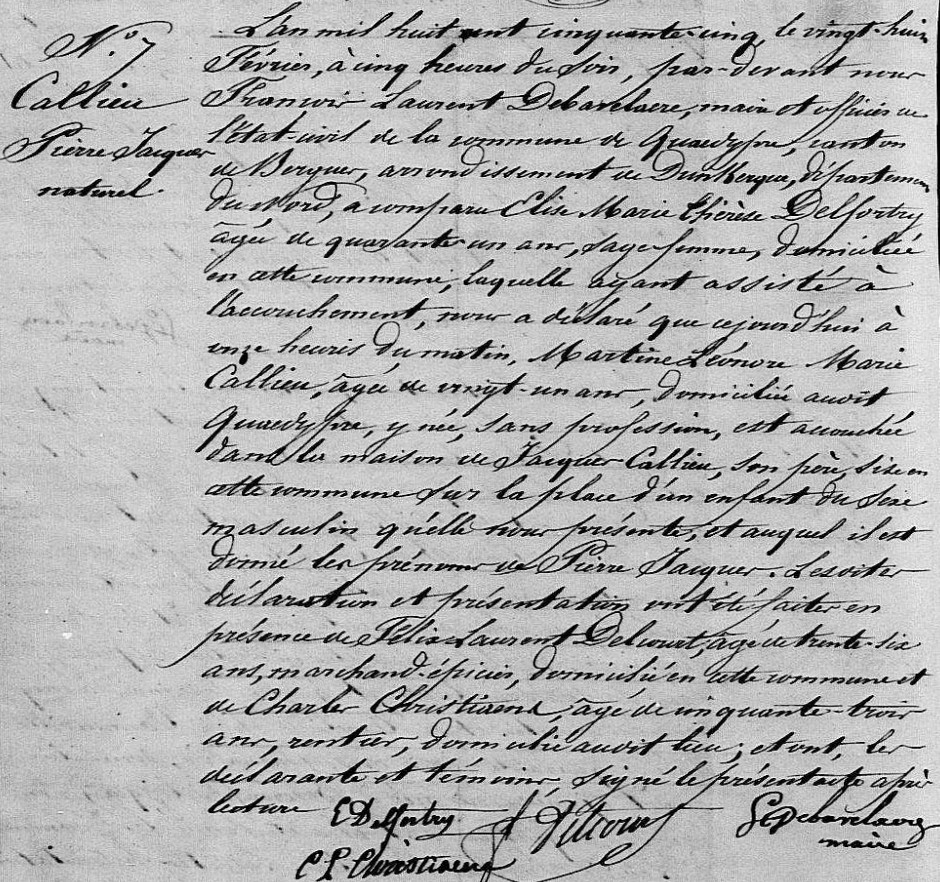 N.° 7
Callieu
Pierre Jacques
naturel.
L'an mil huit cent cinquante-cinq, le vingt-huit
Février, à cinq heures du soir, par-devant nous
François Laurent Debavelaere, maire et officier de
l'état-civil de la commune de Quaedypre, canton
de Bergues, arrondissement de Dunkerque, département
du Nord, a comparu Elise Marie Thérèse Delfortry
âgée de quarante un ans, sage-femme, domiciliée
en cette commune, laquelle ayant assisté à
l'accouchement, nous a déclaré que cejourd'hui à
onze heures du matin, Martine Léonore Marie
Callieu, âgée de vingt-un ans, domiciliée audit
Quaedypre, y née, sans profession, est accouchée
dans la maison de Jacques Callieu, son père, sise en
cette commune sur la place d'un enfant du sexe
masculin qu'elle nous présente, et auquel il est
donné les prénoms de Pierre Jacques. Lesdites
déclaration et présentation ont été faites en
présence de Félix Laurent Delcourt, âgé de trente-six
ans, marchand-épicier, domicilié en cette commune et
de Charles Christiaens, âgé de cinquante-trois
ans, rentier, domicilié audit lieu; et ont, les
déclarante et témoins, signé le présent acte après
lecture
E Delfortry
Delcourt
Debavelaere
maire
C L Christiaens